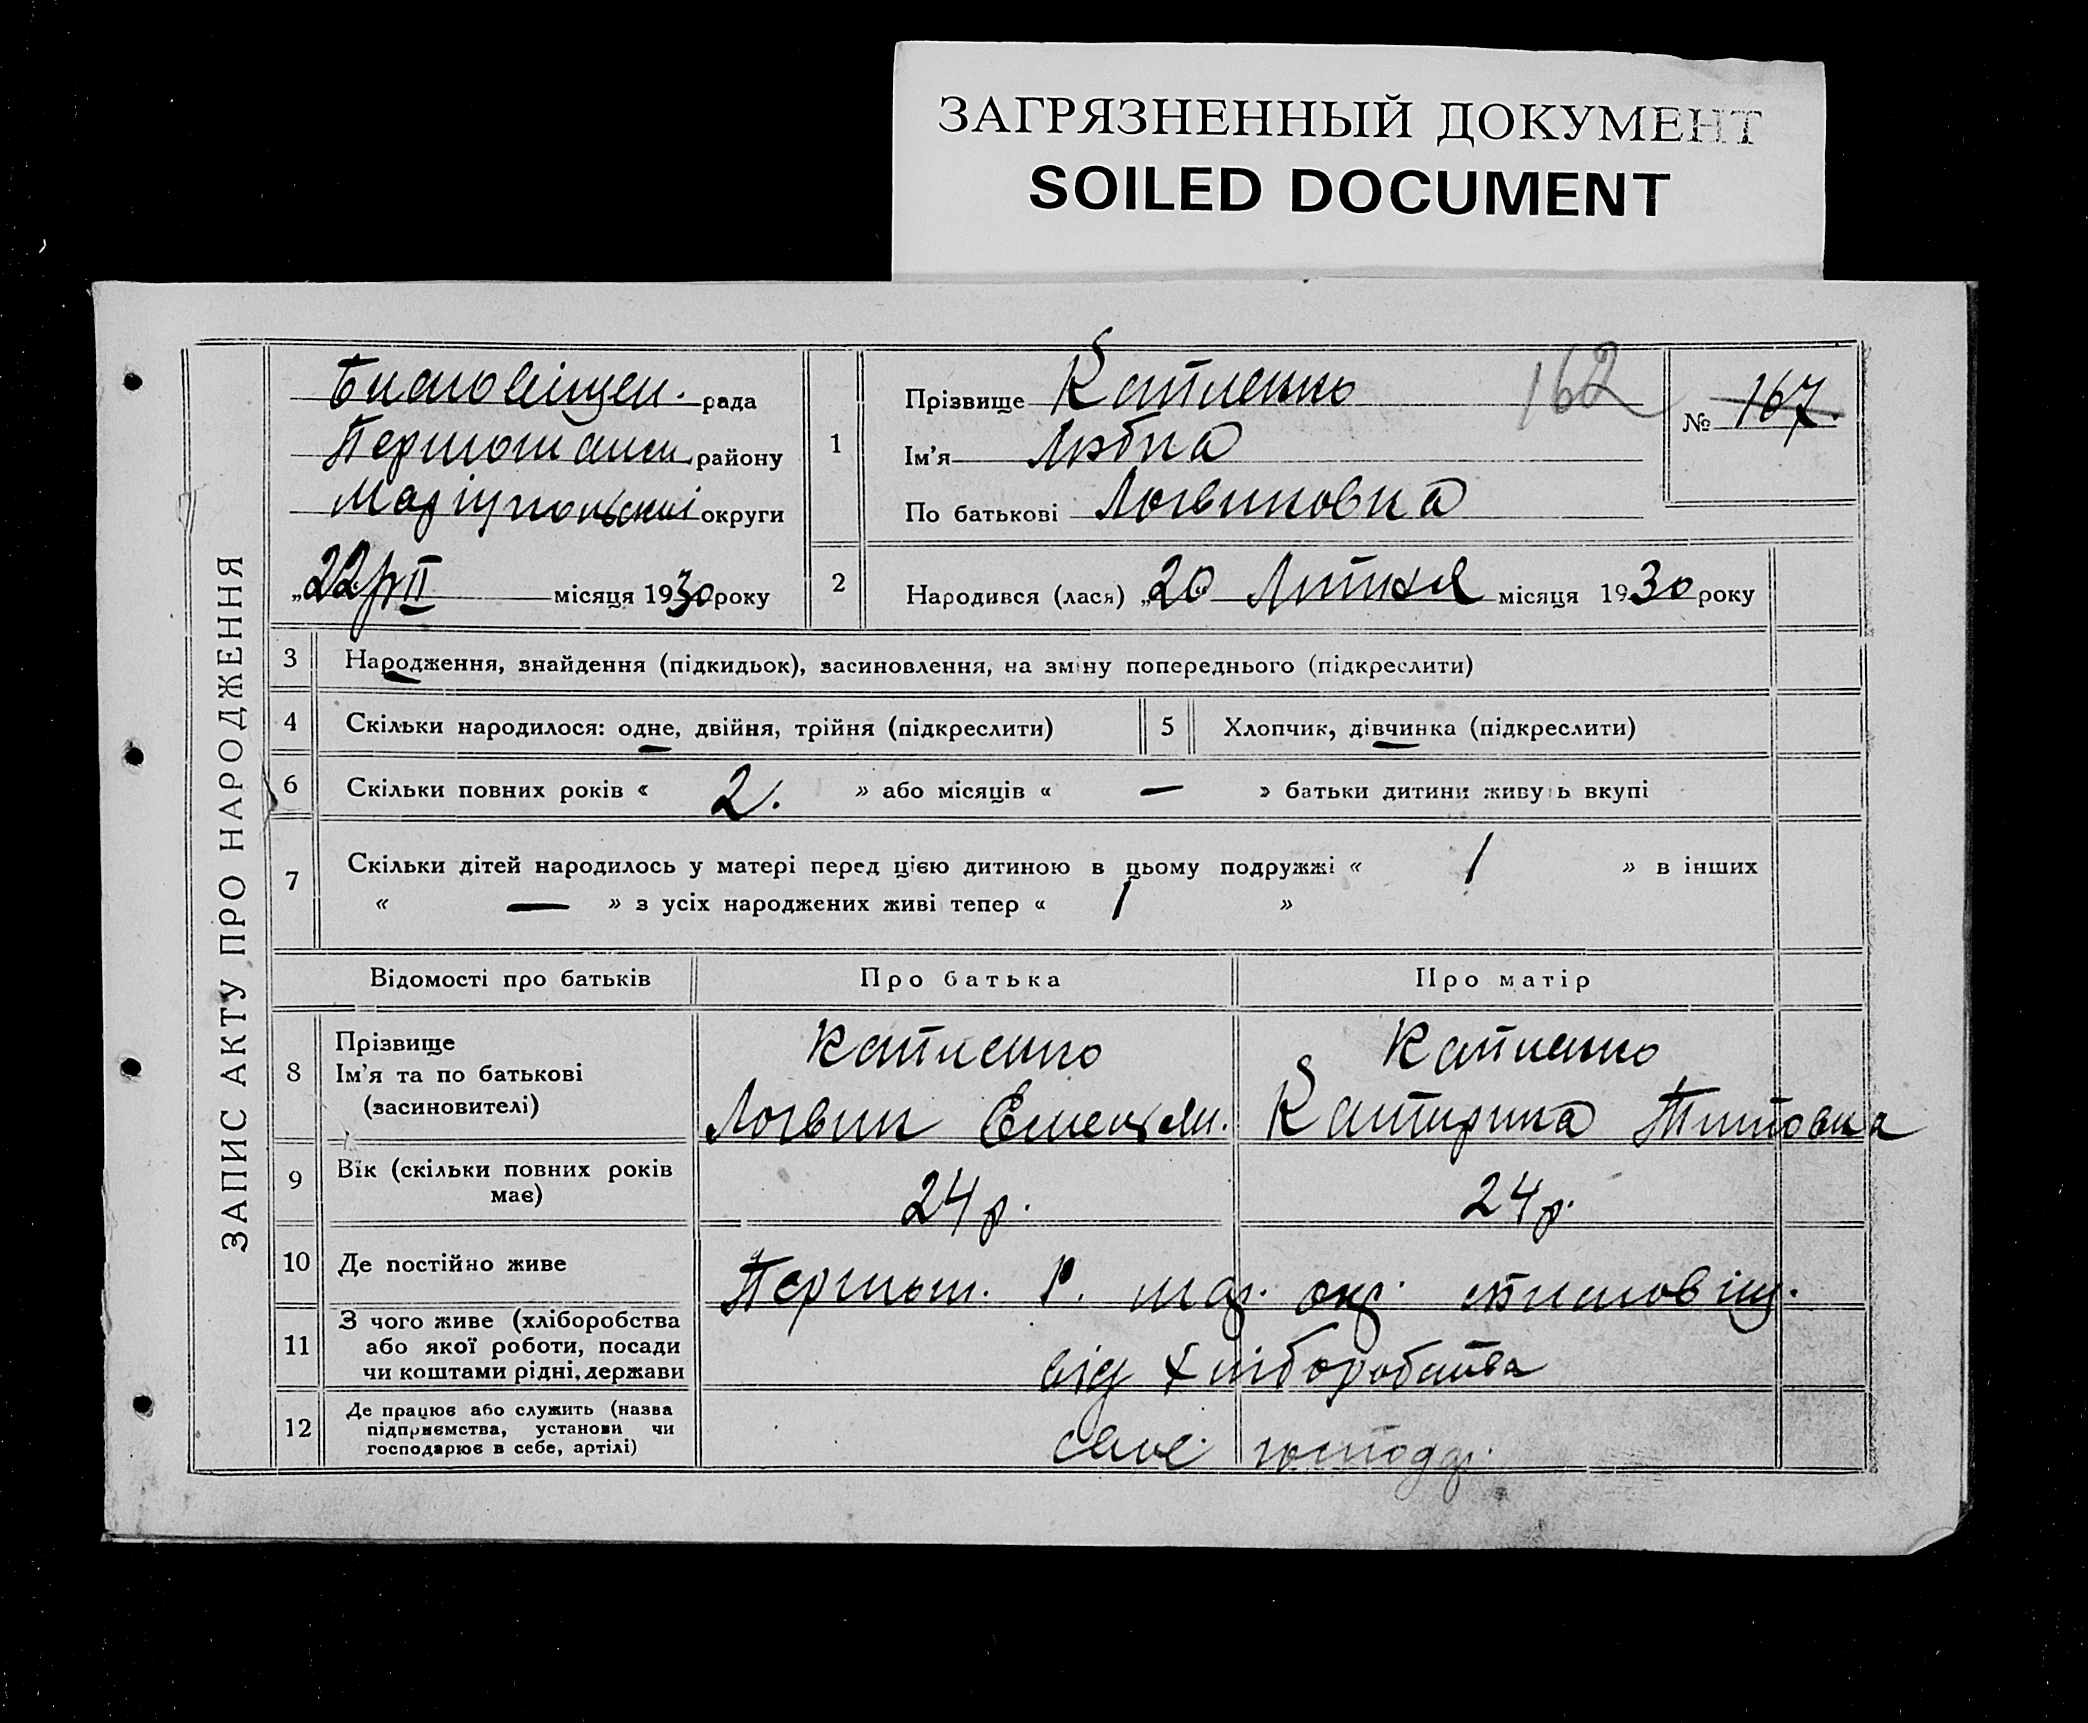 ЗАГРЯЗНЕННЫЙ ДОКУМЕНТ
SOILED DOCUMENT
ЗАПИС АКТУ ПРО НАРОДЖЕННЯ
рада
району
Маріупольської округи
„22/II місяця 1930 року
1
Прізвище Катленко
Ім'я Любпа
По батькові Логвиновна
162
№ 167.
2 Народився (лася) „20 Лютня місяця 1930 року
3 Народження, знайдення (підкидьок), засиновлення, на зміну попереднього (підкреслити)
4 Скільки народилося: одне, двійня, трійня (підкреслити)
5 Хлопчик, дівчинка (підкреслити)
6 Скільки повних років « 2. » або місяців « — » батьки дитини живуть вкупі
7 Скільки дітей народилось у матері перед цією дитиною в цьому подружжі « 1 » в інших
« — » з усіх народжених живі тепер « 1 »
Відомості про батьків Про батька Про матір
8 Прізвище
Ім'я та по батькові
(засиновителі)
Катленко
Логвин
Катленко
Катирина Титовна
9 Вік (скільки повних років
має)
24 р. 24 р.
10 Де постійно живе
Першот. Р. мар. окр.
11 З чого живе (хліборобства
або якої роботи, посади
чи коштами рідні, держави
від хліборобства
12 Де працює або служить (назва
підприємства, установи чи
господарює в себе, артілі)
своє господр.